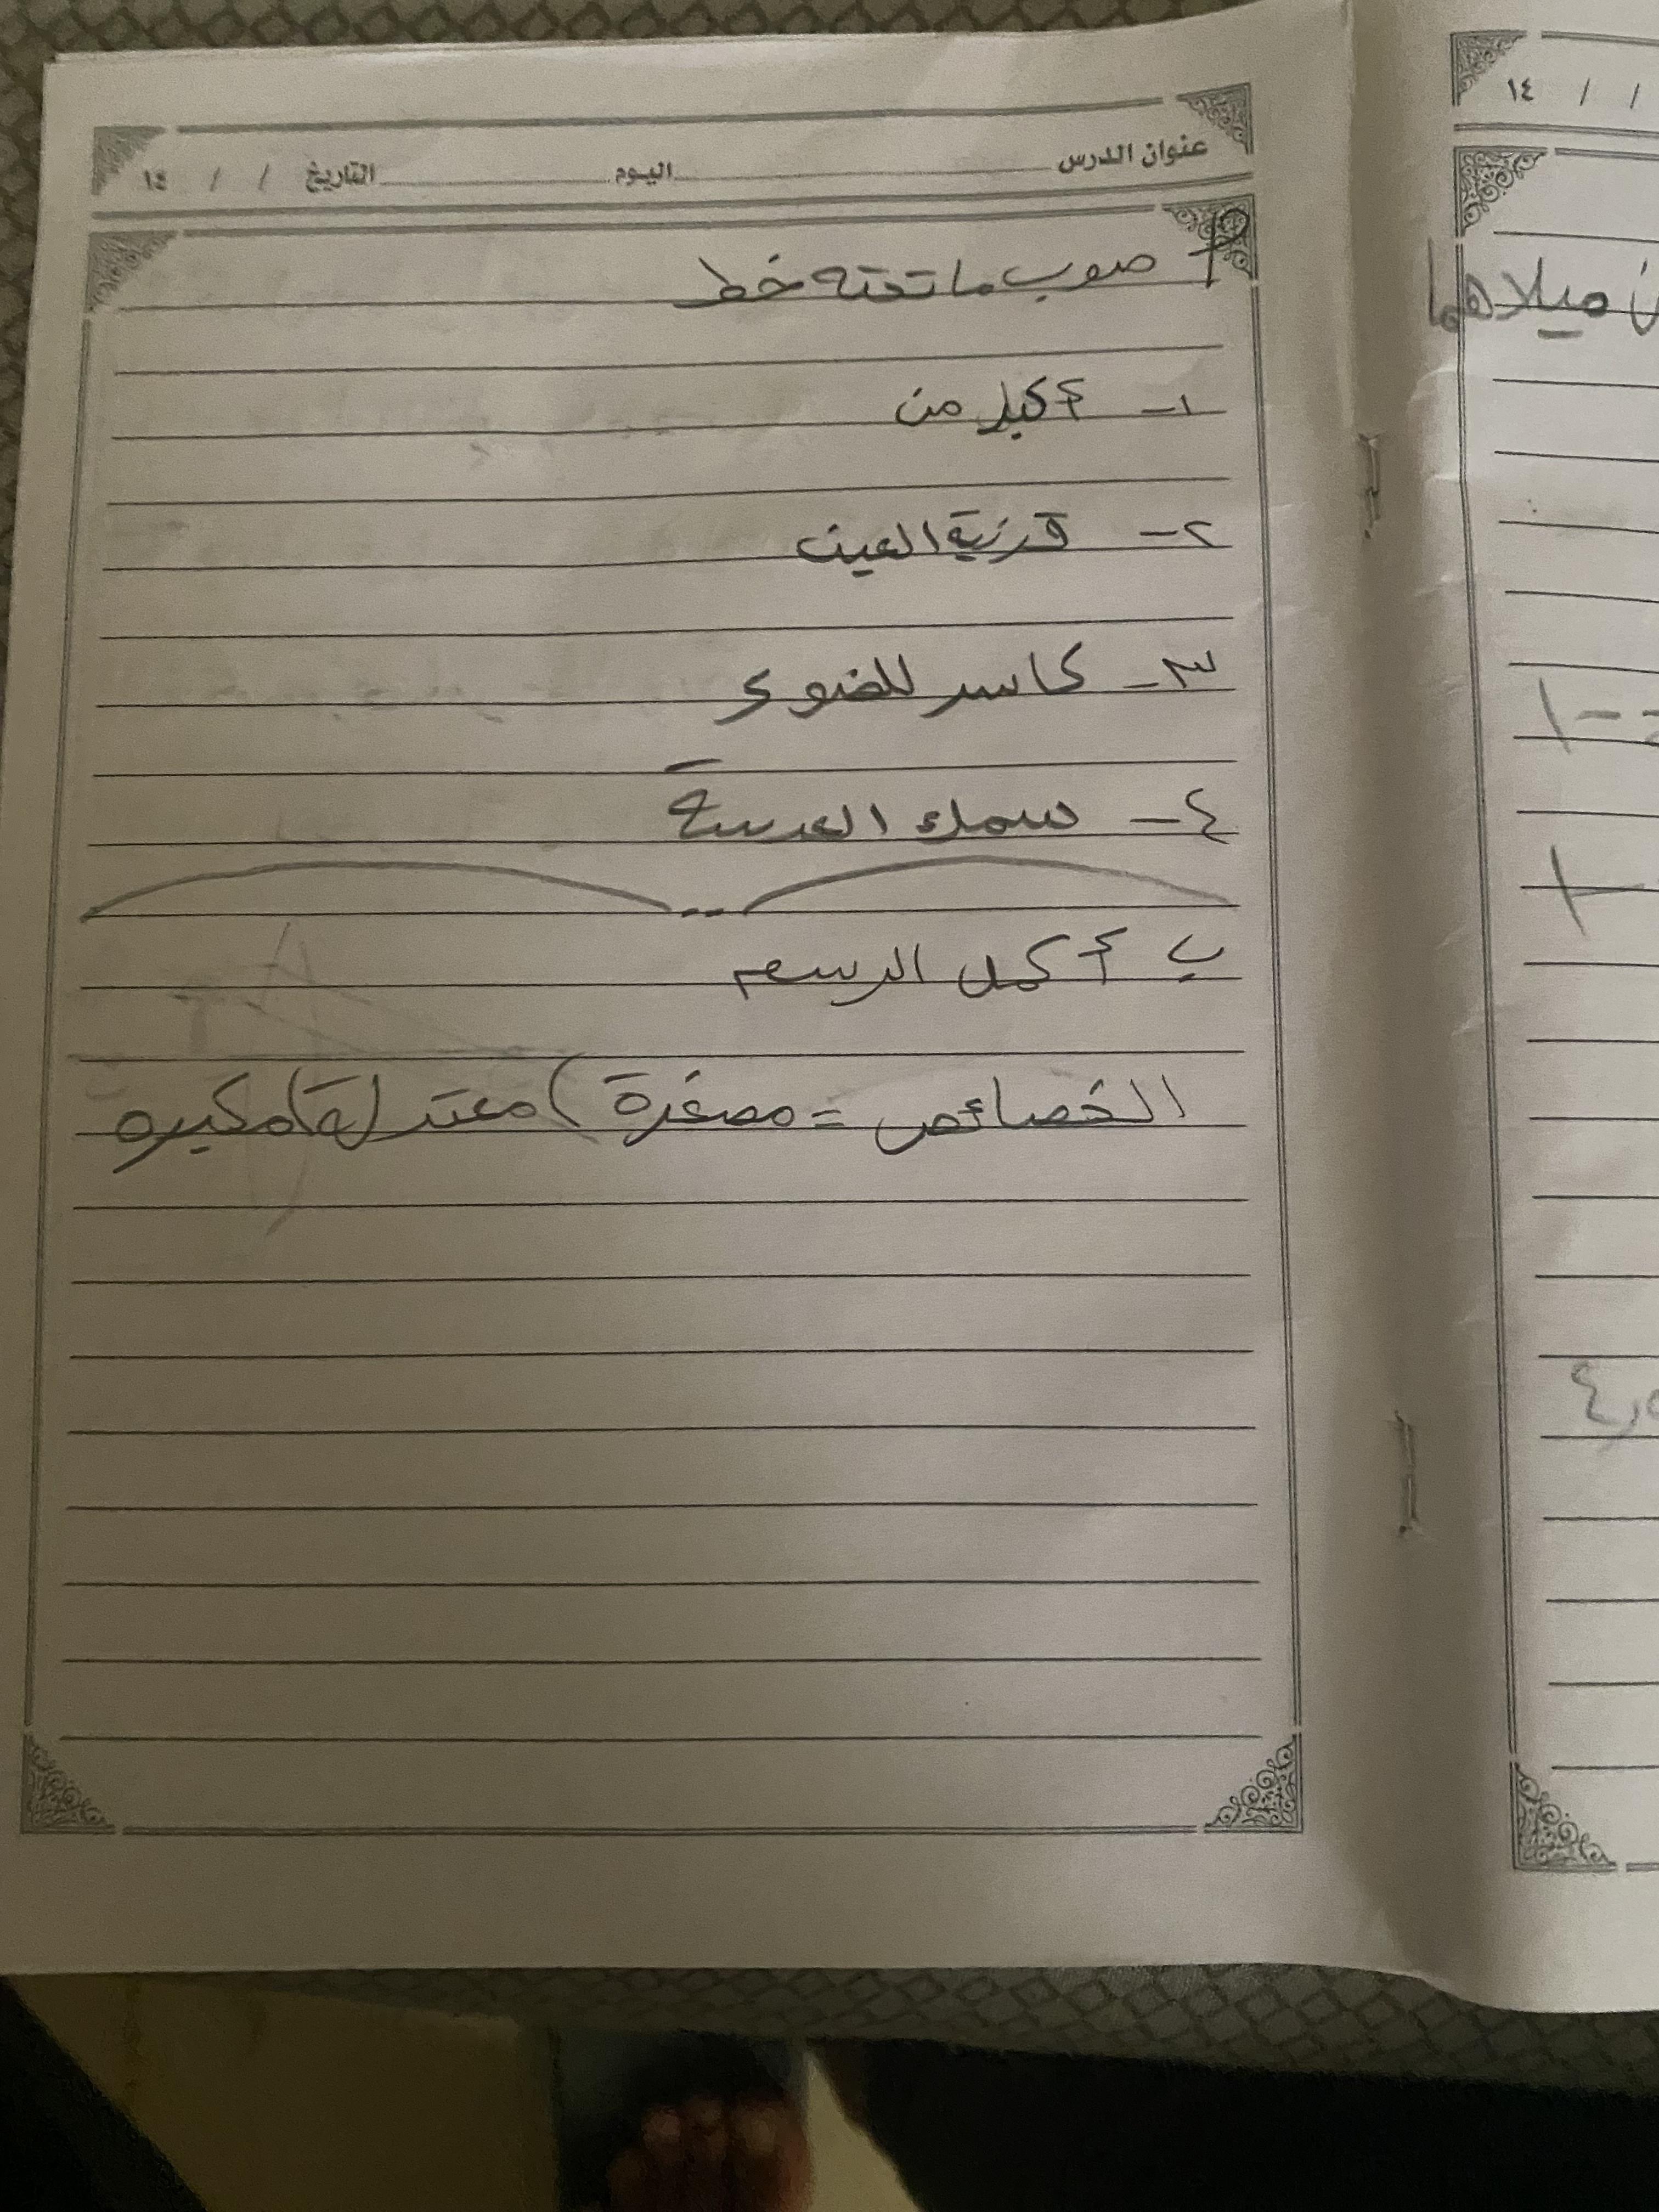 عنوان الدرس اليوم التاريخ / / ١٤
أ- صوب ما تحته خط
١- أكبر من
٢- قرنية العين
٣- كاسر للضوء
٤- سمك العدسة
ب أكمل الرسم
الخصائص = مصغرة) معتدلة) مكبره
١٤ / /
ميلاهما